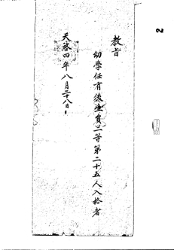 教旨
幼學任有後生員三等第二十五人入格者
天啓四年八月二十八日
2